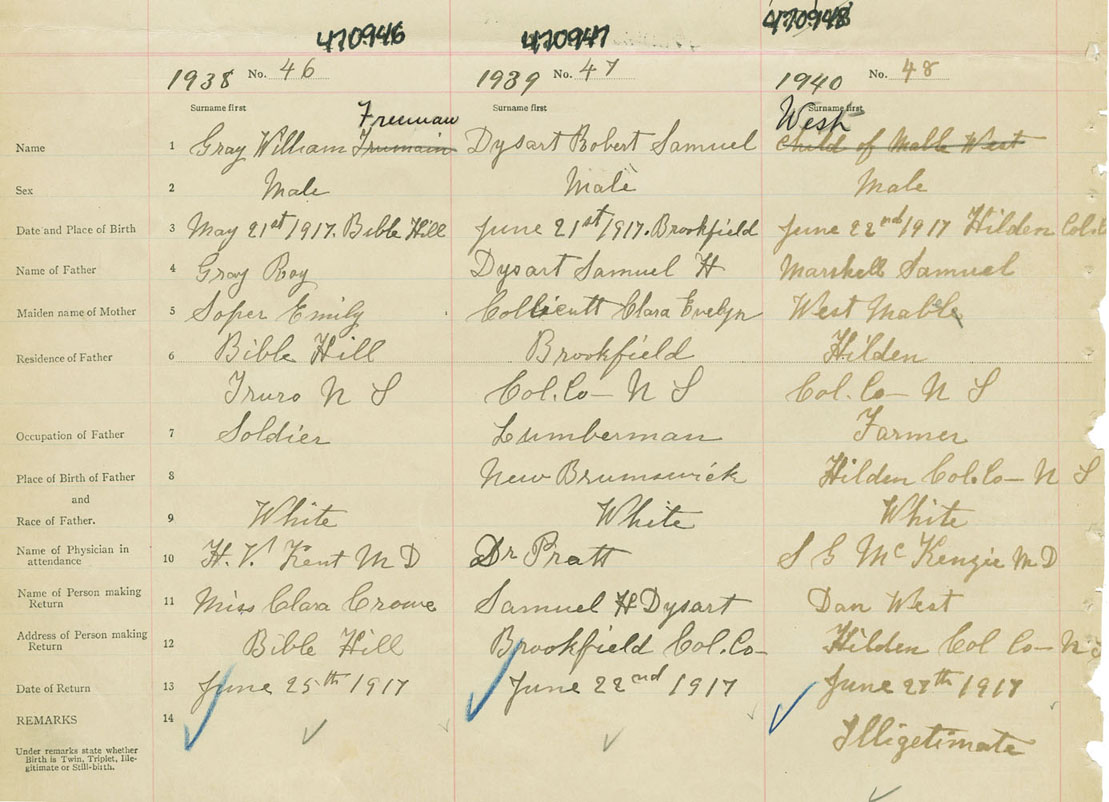 470946 470947 470948
1938 No. 46 1939 No. 47 1940 No. 48
Surname first Surname first Surname first
Freeman West
Name 1 Gray William Trumain Dysart Robert Samuel Child of Mable West
Sex 2 Male Male Male
Date and Place of Birth 3 May 21st 1917. Bible Hill June 21st 1917. Brookfield June 22nd 1917 Hilden Col.
Name of Father 4 Gray Roy Dysart Samuel H Marshell Samuel
Maiden name of Mother 5 Soper Emily Collicutt Clara Evelyn West Mable
Residence of Father 6 Bible Hill Brookfield Hilden
Truro N S Col. Co— N S Col. Co— N S
Occupation of Father 7 Soldier Lumberman Farmer
Place of Birth of Father 8 New Brumswick Hilden Col. Co— N S
and
Race of Father. 9 White White White
Name of Physician in
attendance 10 H. V. Kent M D Dr Pratt S G McKenzie M D
Name of Person making
Return 11 Miss Clara Crowe Samuel H Dysart Dan West
Address of Person making
Return 12 Bible Hill Brookfield Col. Co— Hilden Col Co— N S
Date of Return 13 June 25th 1917 June 22nd 1917 June 27th 1917
REMARKS 14 Illigetimate
Under remarks state whether
Birth is Twin, Triplet, Ille-
gitimate or Still-birth.